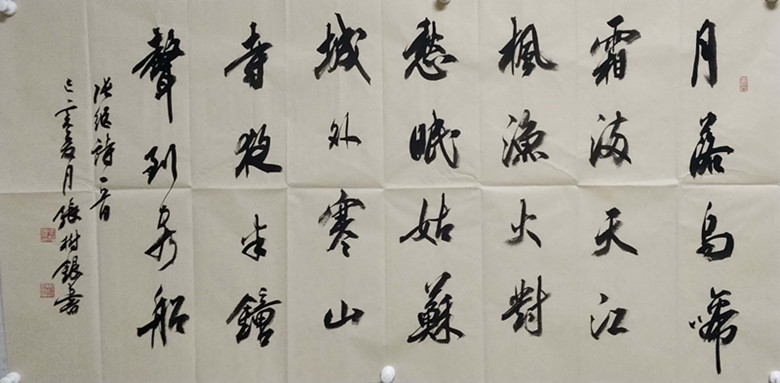 月落烏啼
霜滿天江
楓漁火對
愁眠姑蘇
城外寒山
寺夜半鐘
聲到客船
張繼詩一首
己亥月張樹銀書